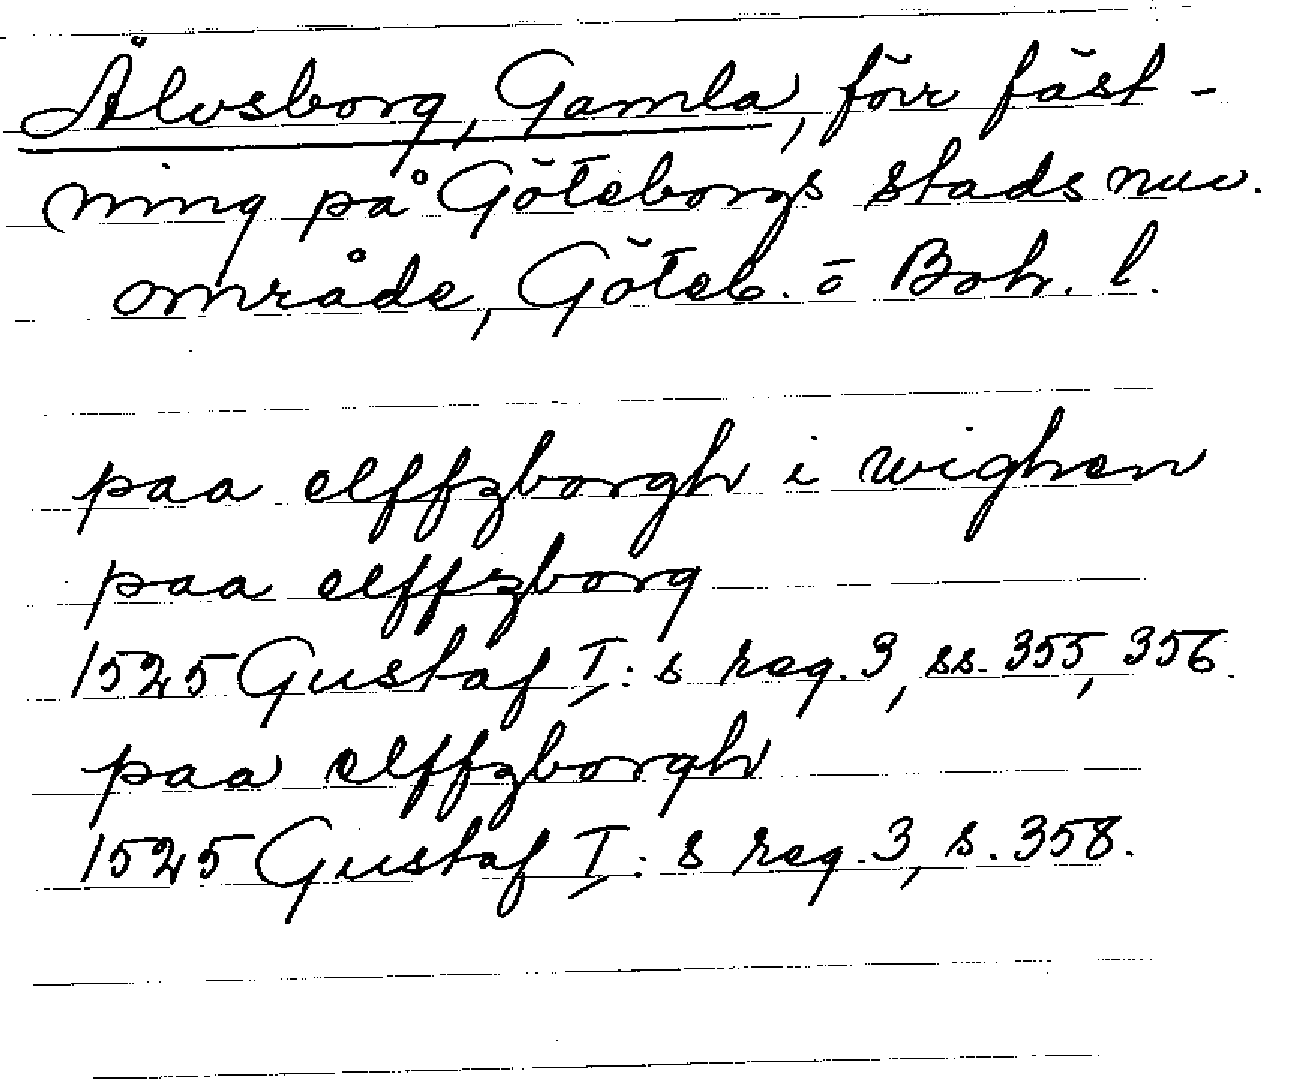 Ålvsborg, Gamla, förr fäst-
ning på Göteborgs stads nuv.
område, Göteb. o Boh. l.
paa elffzborgh i wighen
paa elffzborg
1525 Gustaf I:s reg. 3, ss. 355, 356.
paa elffzborgh
1525 Gustaf I:s reg. 3, s. 358.